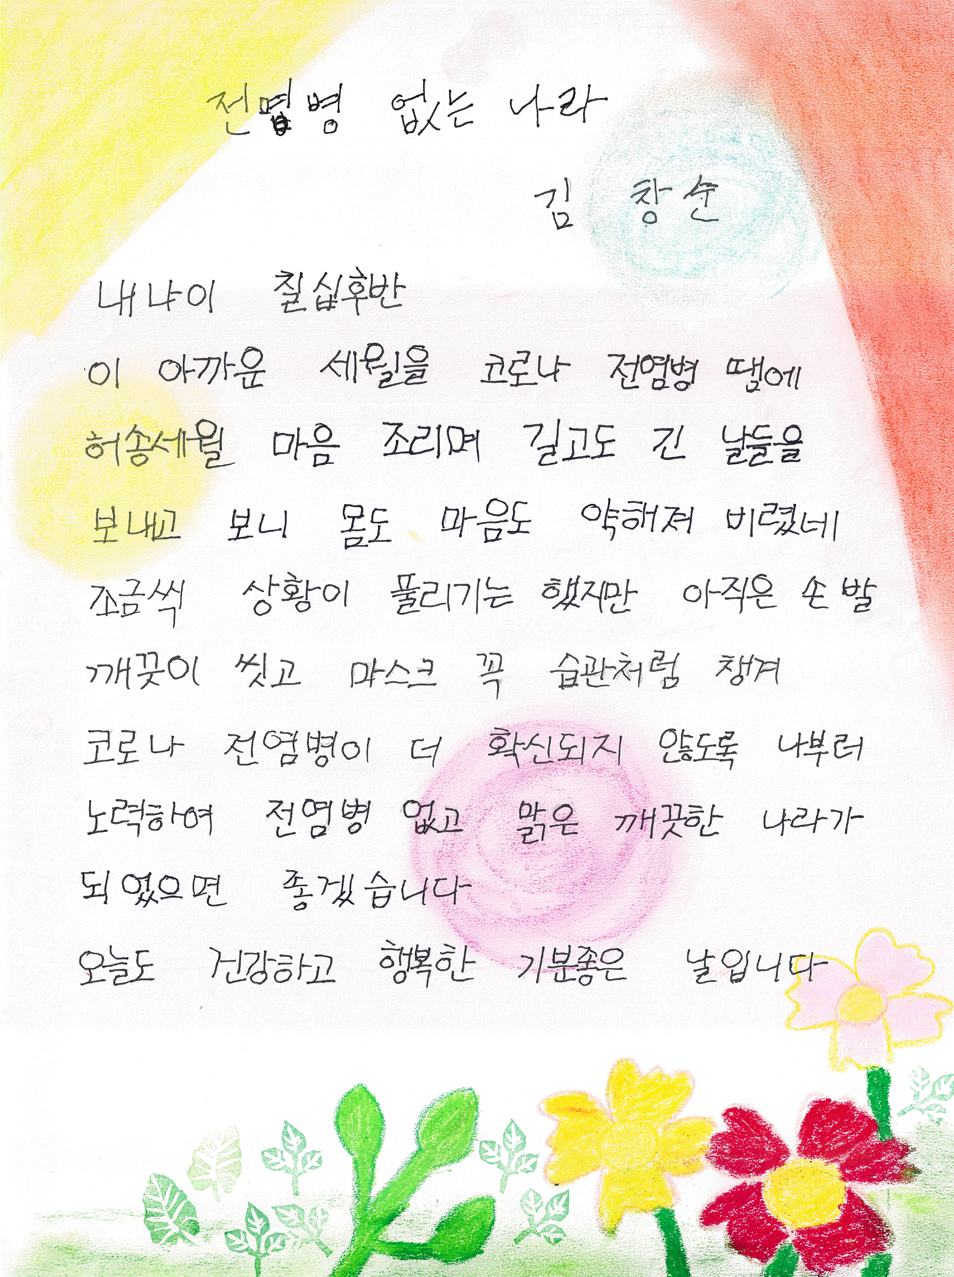 전염병 없는 나라
김 창순
내나이 칠십후반
이 아까운 세월을 코로나 전염병 땜에
허송세월 마음 조리며 길고도 긴 날들을
보내고 보니 몸도 마음도 약해져 비렸네
조금씩 상황이 풀리기는 했지만 아직은 손 발
깨끗이 씻고 마스크 꼭 습관처럼 챙겨
코로나 전염병이 더 확신되지 않도록 나부터
노력하여 전염병 없고 맑은 깨끗한 나라가
되었으면 좋겠습니다
오늘도 건강하고 행복한 기분좋은 날입니다